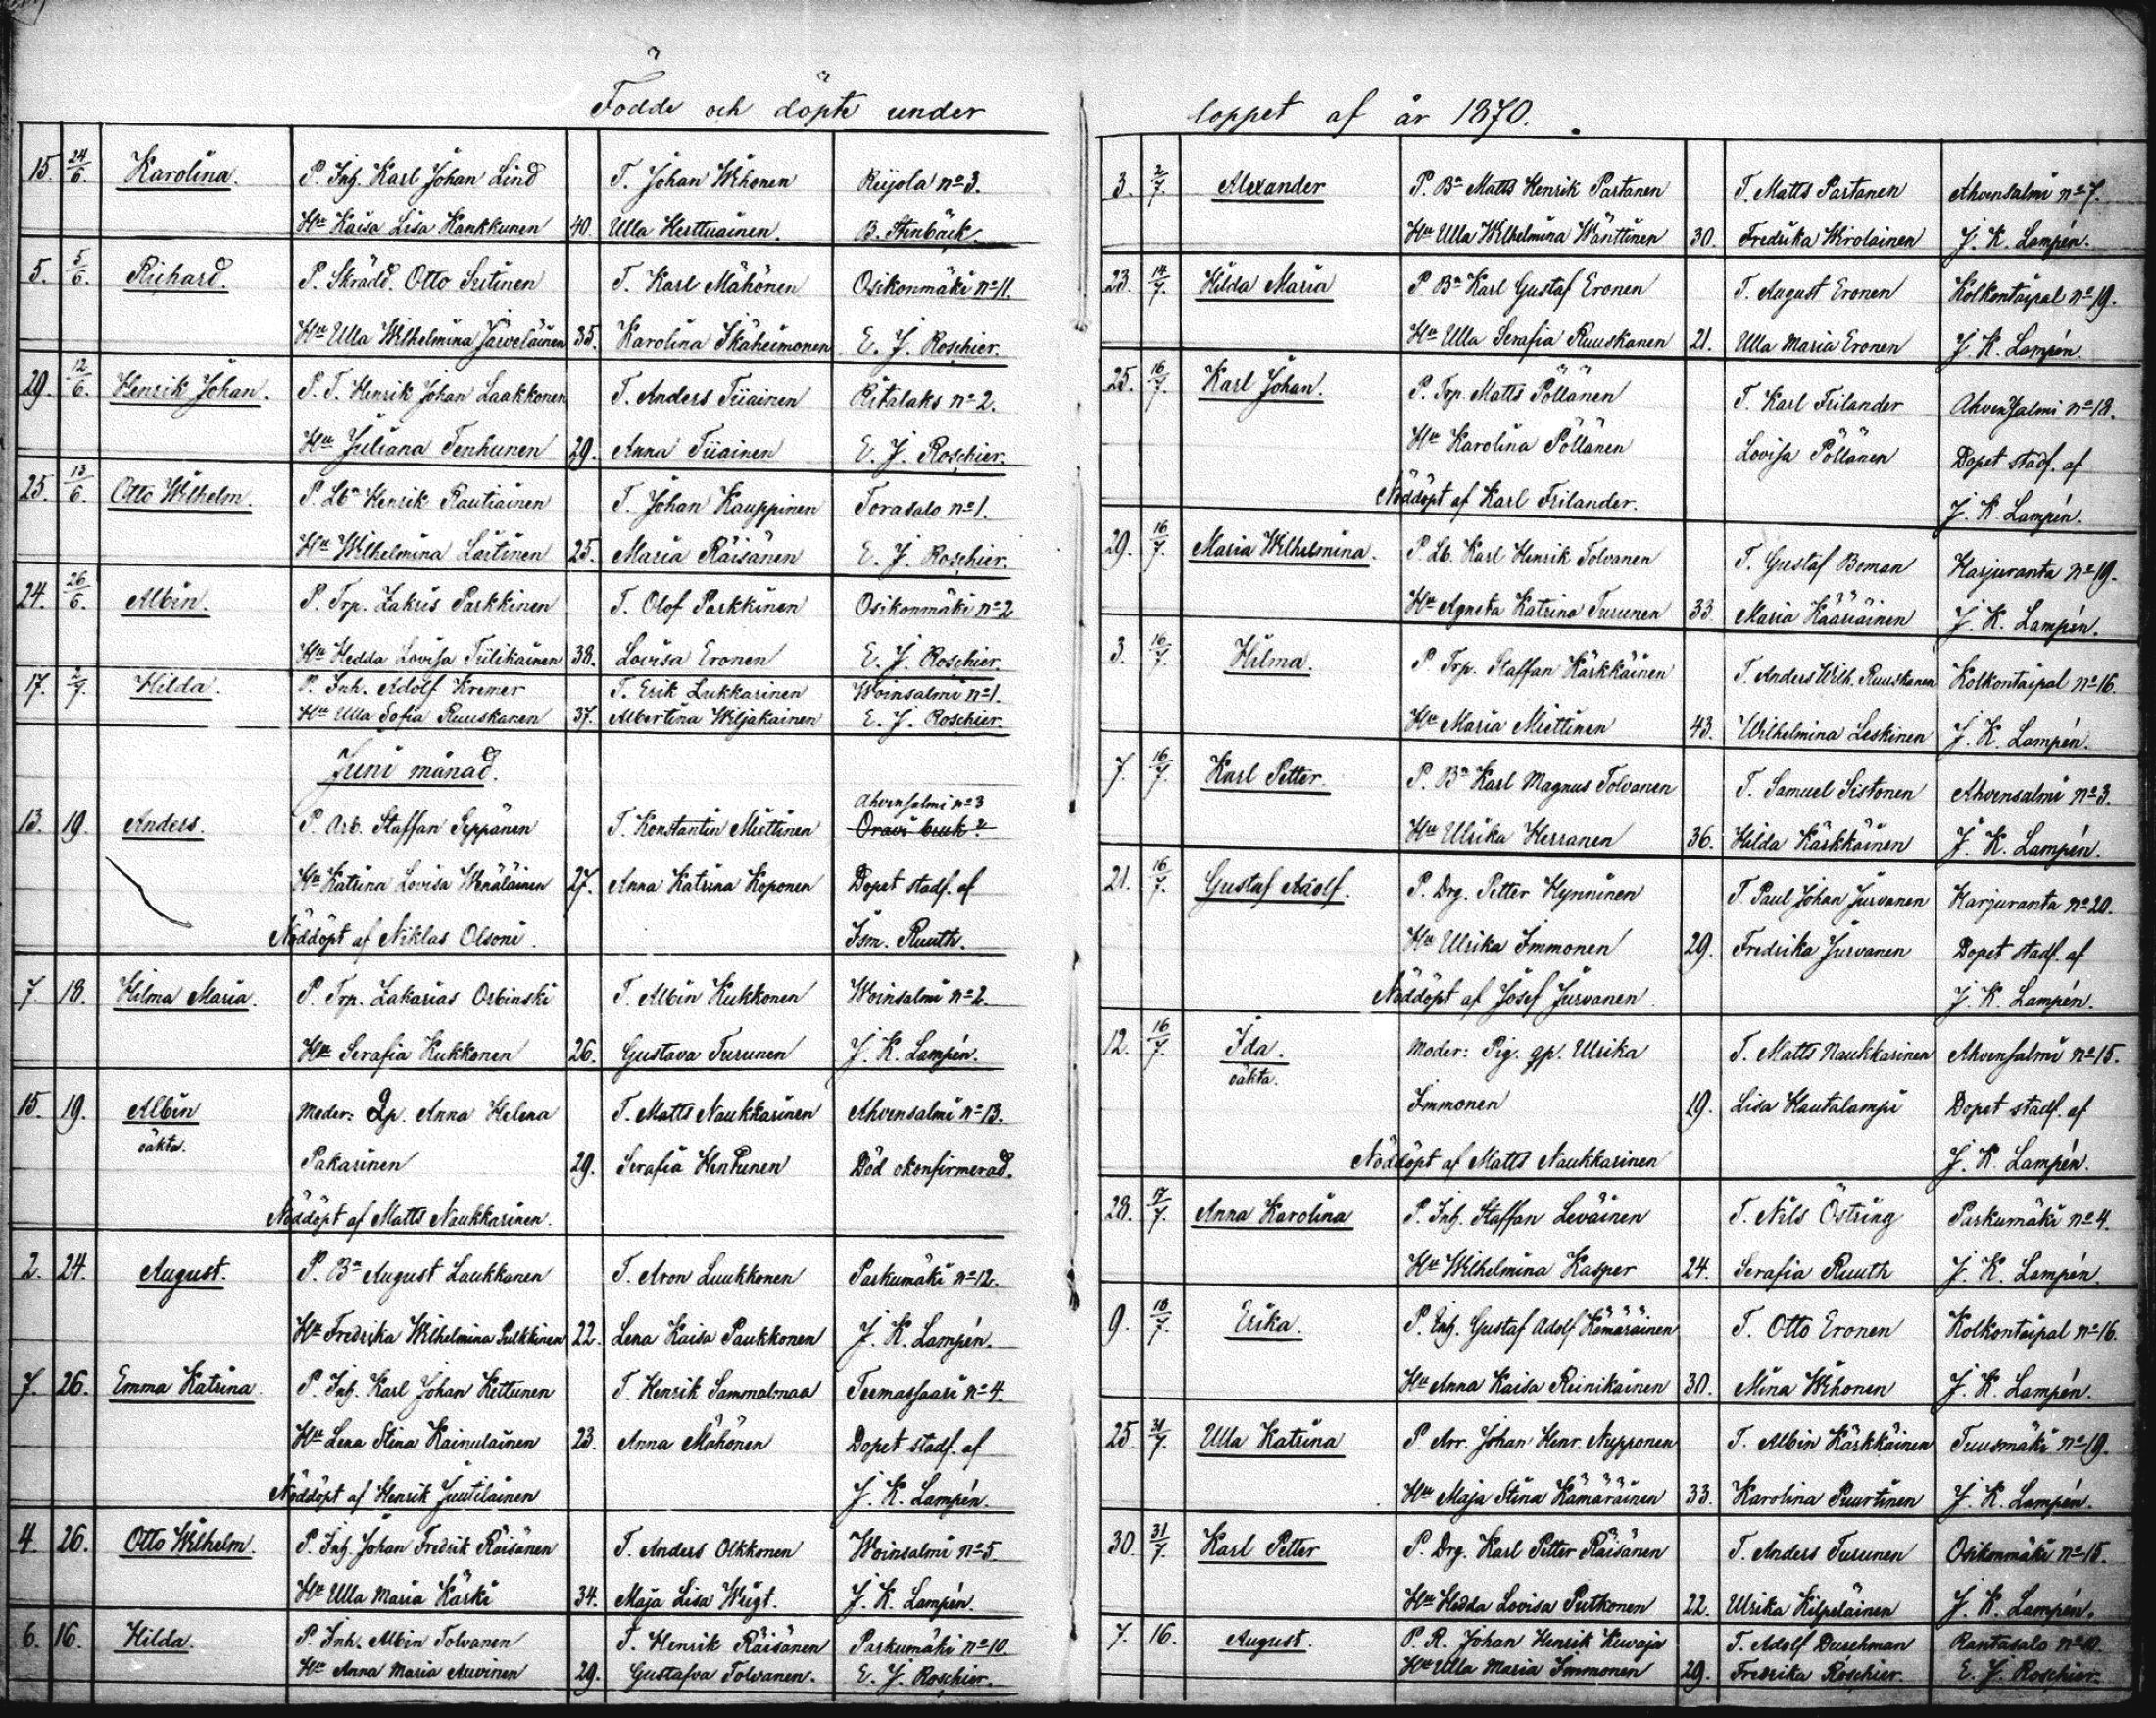 Födde och döpte under
15. 24/6. Karolina. P. Inh. Karl Johan Lind T. Johan Wihonen Reijola no 3.
Hu Kaisa Lisa Kankkunen 40. Ulla Herttuainen. B. Stenbäck.
5. 5/6. Richard. P. Skrädd. Otto Sutinen T. Karl Mähönen Osikonmäki no 11.
Hu Ulla Wilhelmina Järveläinen 35. Karolina Ikäheimonen E. J. Roschier.
29. 12/6. Henrik Johan. P. T. Henrik Johan Laakkonen T. Anders Tiiainen Ritalaks no 2.
Hu Juliana Tenhunen 29. Anna Tiiainen E. J. Roschier.
25. 13/6. Otto Wilhelm. P. Lbn Henrik Rautiainen T. Johan Kauppinen Torasalo no 1.
Hu Wilhelmina Laitinen 25. Maria Räisänen E. J. Roschier.
24. 26/6. Albin. P. Trp. Zakris Parkkinen T. Olof Parkkinen Osikonmäki no 2
Hu Hedda Lovisa Tiilikainen 38. Lovisa Eronen E. J. Roschier.
17. 2/7. Hilda. P. Inh. Adolf Kremer T. Erik Lukkarinen Woinsalmi no 1.
Hu Ulla Sofia Ruuskanen 37. Albertina Wiljakainen E. J. Roschier.
Juni månad.
Ahvensalmi no 3
13. 19. Anders. P. Arb. Staffan Seppänen T. Konstantin Miettinen Oravi bruk?
Hu Katrina Lovisa Wenäläinen 27. Anna Katrina Koponen Dopet stadf. af
Nöddöpt af Niklas Olsoni. Ism. Ruuth.
7 18. Hilma Maria. P. Trp. Zakarias Orbinski T. Albin Kukkonen Woinsalmi no 2.
Hu Serafia Kukkonen 26. Gustava Turunen J. K. Lampén.
15. 19. Albin Moder: Qp. Anna Helena T. Matts Naukkarinen Ahvensalmi no 13.
oäkta. Pakarinen 29. Serafia Henttunen Död okonfirmerad.
Nöddöpt af Matts Naukkarinen.
2. 24. August. P. Bn August Laukkanen T. Aron Luukkonen Parkumäki no 12.
Hu Fredrika Wilhelmina Pulkkinen 22. Lena Kaisa Paukkonen J. K. Lampén.
7. 26. Emma Katrina. P. Inh. Karl Johan Kettunen T. Henrik Sammalmaa Teemassaari no 4.
Hu Lena Stina Kainulainen 23. Anna Mähönen Dopet stadf. af
Nöddöpt af Henrik Juutilainen J. K. Lampén.
4 26. Otto Wilhelm. P. Inh. Johan Fredrik Räisänen T. Anders Olkkonen Woinsalmi no 5.
Hu Ulla Maria Kärki 34. Maja Lisa Weigt. J. K. Lampén.
6. 16. Hilda. P. Inh. Albin Tolvanen T. Henrik Räisänen Parkumäki no 10.
Hu Anna Maria Auvinen 29. Gustafva Tolvanen. E. J. Roschier.
loppet af år 1870.
3. 2/7. Alexander P. Bn Matts Henrik Partanen T. Matts Partanen Ahvensalmi no 7.
Hu Ulla Wilhelmina Wänttinen 30. Fredrika Wirolainen J. K. Lampén.
23. 14/7. Hilda Maria P. Bn Karl Gustaf Eronen T. August Eronen Kolkontaipal no 19.
Hu Ulla Serafia Ruuskanen 21. Ulla Maria Eronen J. K. Lampén
25. 16/7. Karl Johan. P. Trp. Matts Pöllänen T. Karl Frilander Ahvensalmi no 18.
Hu Karolina Pöllänen Lovisa Pöllänen Dopet stadf. af
Nöddöpt af Karl Frilander. J. K. Lampén.
29. 16/7. Maria Wilhelmina. P. Lb. Karl Henrik Tolvanen T. Gustaf Boman Harjuranta no 19.
Hu Agneta Katrina Turunen 33 Maria Kääriäinen J. K. Lampén.
3. 16/7. Hilma. P. Trp. Staffan Kärkkäinen T. Anders Wilh. Ruuskanen Kolkontaipal no 16.
Hu Maria Miettinen 43. Wilhelmina Leskinen J. K. Lampén.
7. 16/7. Karl Petter. P. Bn Karl Magnus Tolvanen T. Samuel Sistonen Ahvensalmi no 3.
Hu Ulrika Herranen 36. Hilda Kärkkäinen J. K. Lampén.
21. 16/7. Gustaf Adolf. P. Drg. Petter Hynninen T. Paul Johan Jurvanen Harjuranta no 20.
Hu Ulrika Immonen 29. Fredrika Jurvanen Dopet stadf. af
Nöddöpt af Josef Jurvanen. J. K. Lampén.
12. 16/7. Ida. Moder: Pig. qp. Ulrika T. Matts Naukkarinen Ahvensalmi no 15.
oäkta. Immonen 19. Lisa Hautalampi Dopet stadf. af
Nöddöpt af Matts Naukkarinen J. K. Lampén.
28. 17/7. Anna Karolina P. Inh. Staffan Leväinen T. Nils Östring Parkumäki no 4.
Hu Wilhelmina Kasper 24. Serafia Ruuth J. K. Lampén.
9. 18/7. Erika. P. Inh. Gustaf Adolf Kämäräinen T. Otto Eronen Kolkontaipal no 16.
Hu Anna Kaisa Reinikainen 30. Mina Wihonen J. K. Lampén.
25. 31/7. Ulla Katrina P. Arr. Johan Henr. Nupponen T. Albin Kärkkäinen Tuusmäki no 19.
Hu Maja Stina Kämäräinen 33. Karolina Puurtinen J. K. Lampén.
30. 31/7. Karl Petter P. Drg. Karl Petter Räisänen T. Anders Turunen Osikonmäki no 15.
Hu Hedda Lovisa Putkonen 22. Ulrika Kilpeläinen J. K. Lampén.
7. 16. August. P. R. Johan Henrik Kuvaja T. Adolf Duschman Rantasalo no 10.
Hu Ulla Maria Immonen 29. Fredrika Roschier. E. J. Roschier.